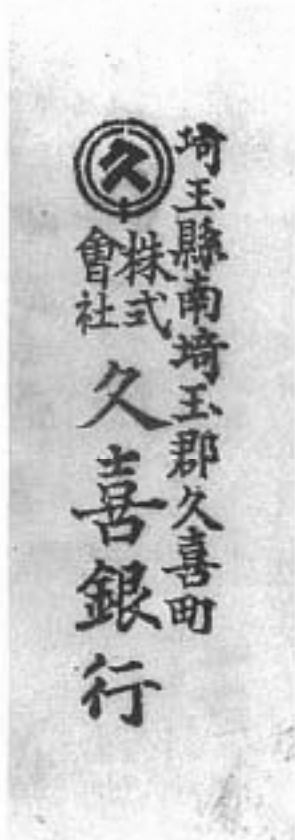 埼玉縣南埼玉郡久喜町
久
株式會社 久喜銀行